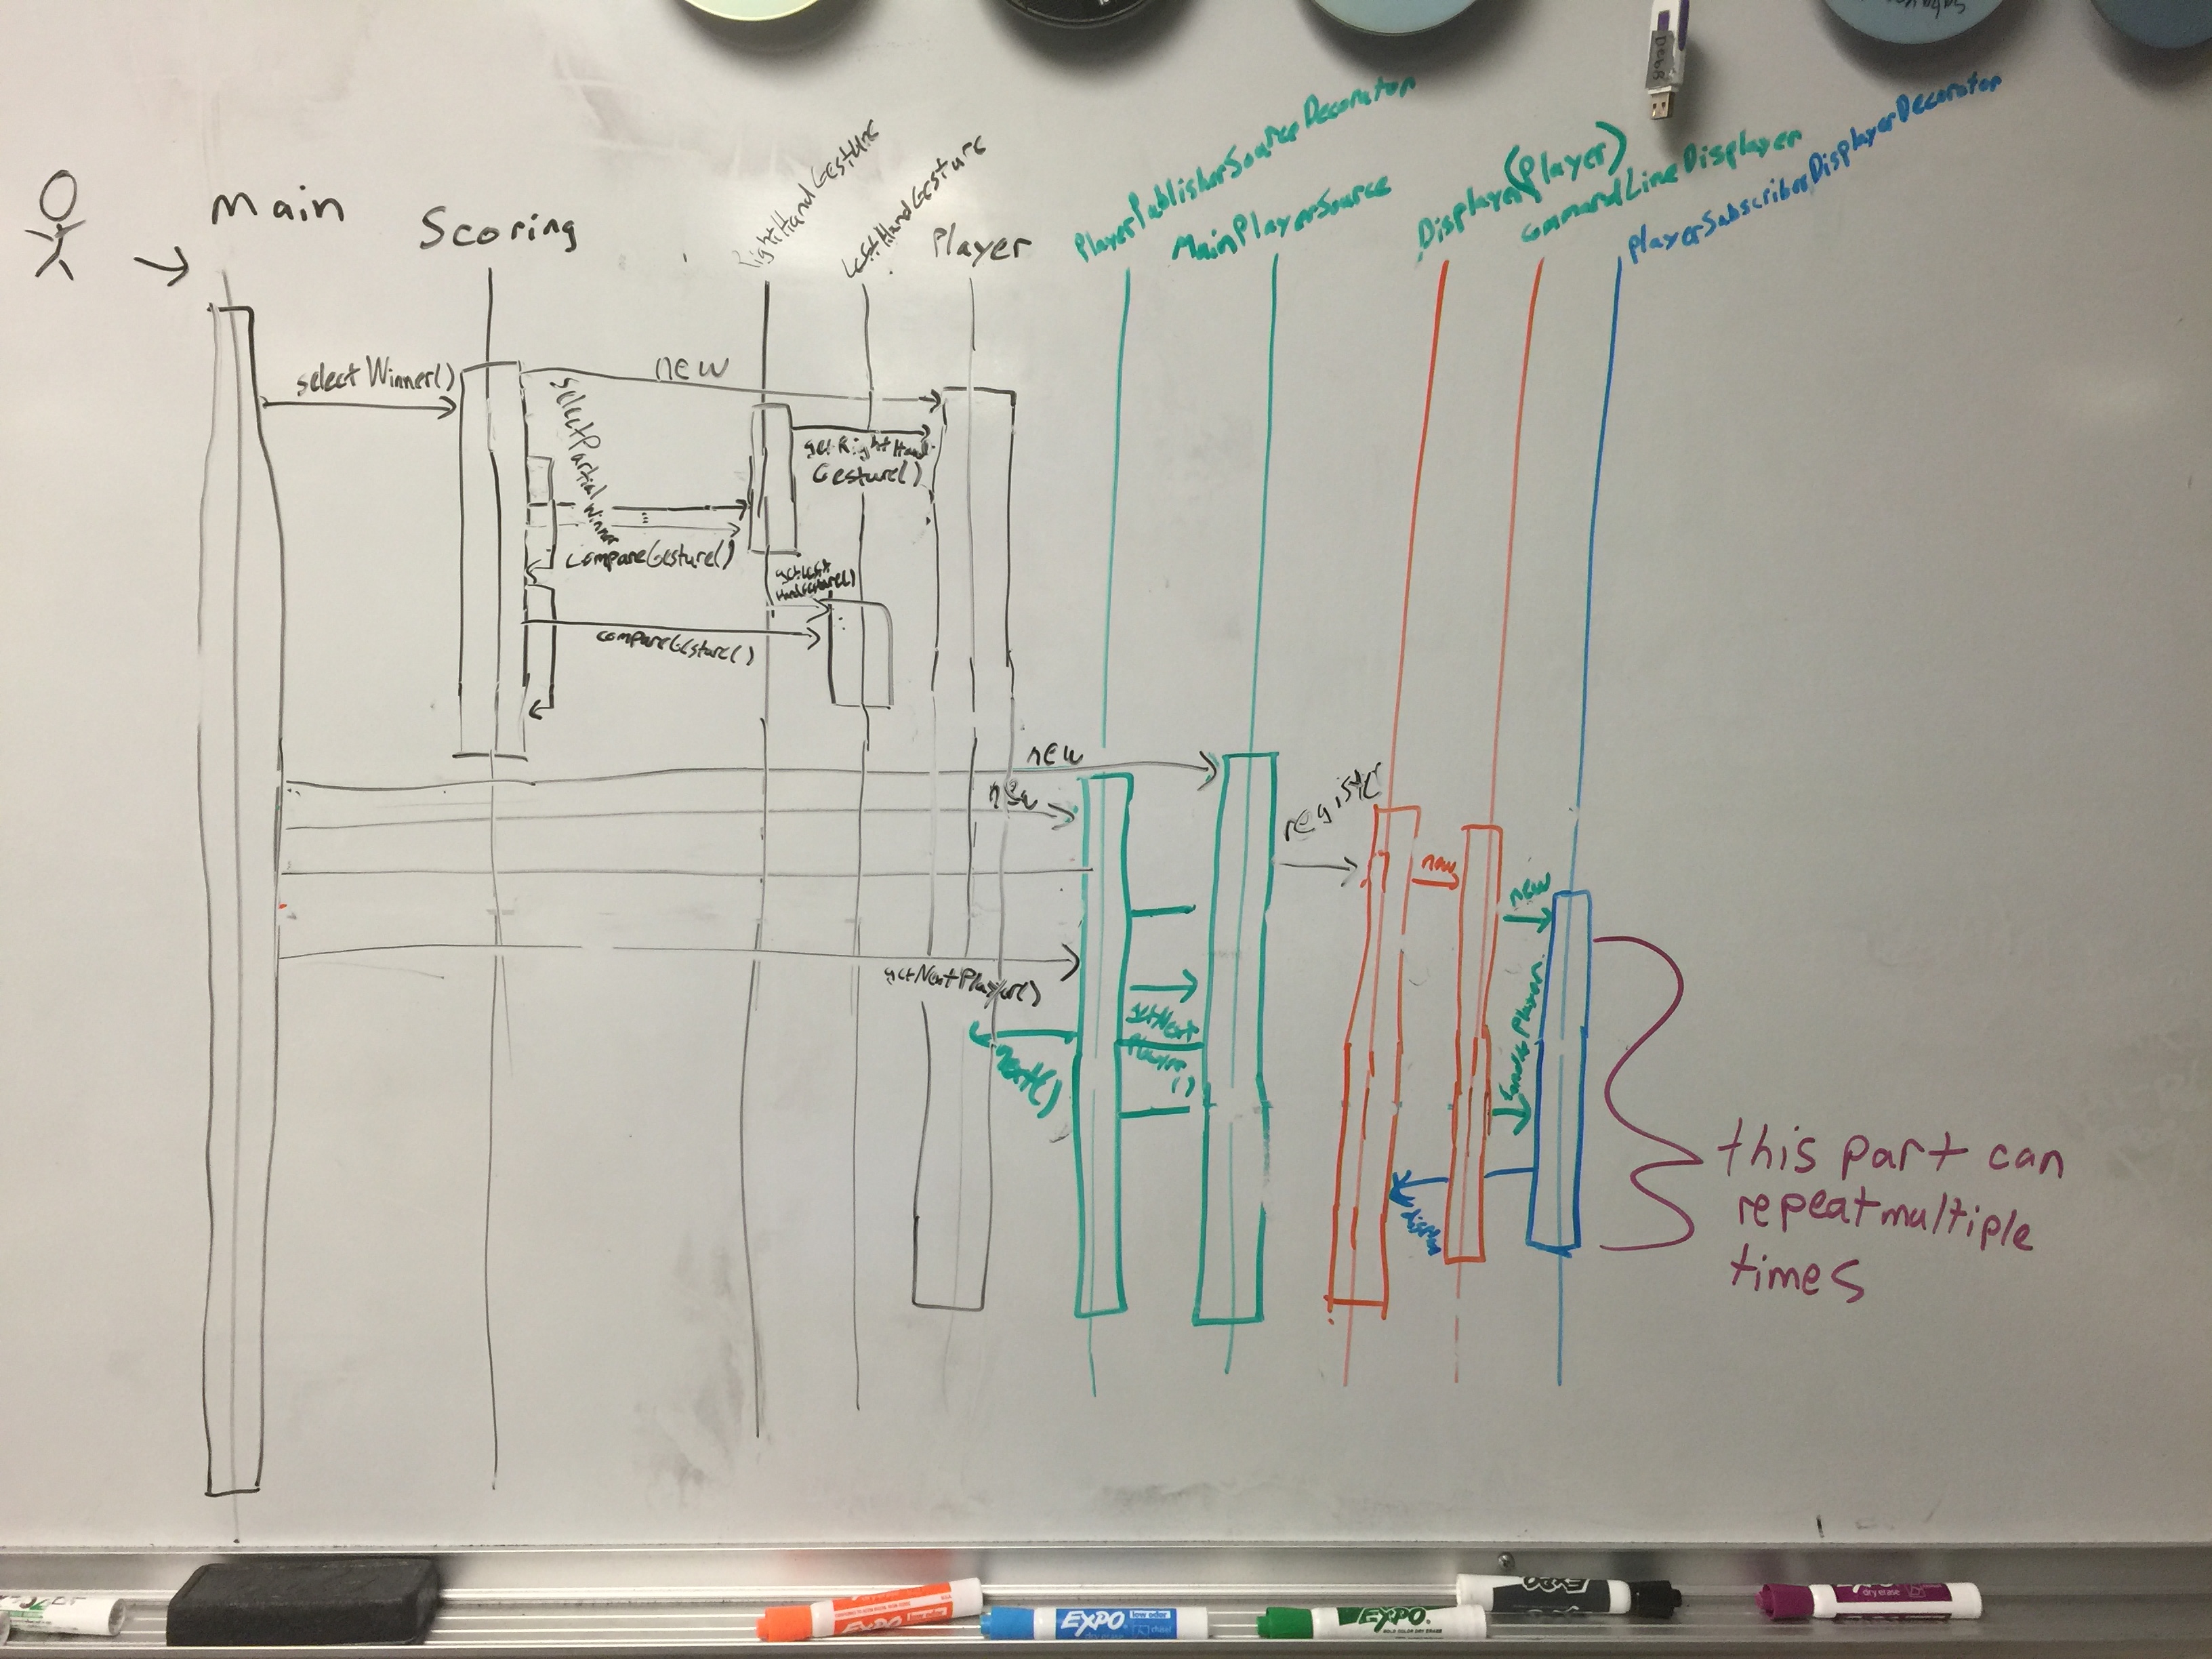 DEGB
Main
Scoring
RightHandGesture
LeftHandGesture
Player
PlayerPublisherSourceDecorator
MainPlayerSource
Displayer(Player)
commandLineDisplayer
playerSubscriberDisplayerDecorator
selectWinner()
new
selectPartial
Winner
getRightHand
Gesture()
compareGesture()
getLeft
HandGesture()
compareGesture()
new
new
register
new
new
getNextPlayer()
getNext
Player
()
next()
sendPlayer
display
this part can
repeat multiple
times
EXPO
EXPO
EXPO